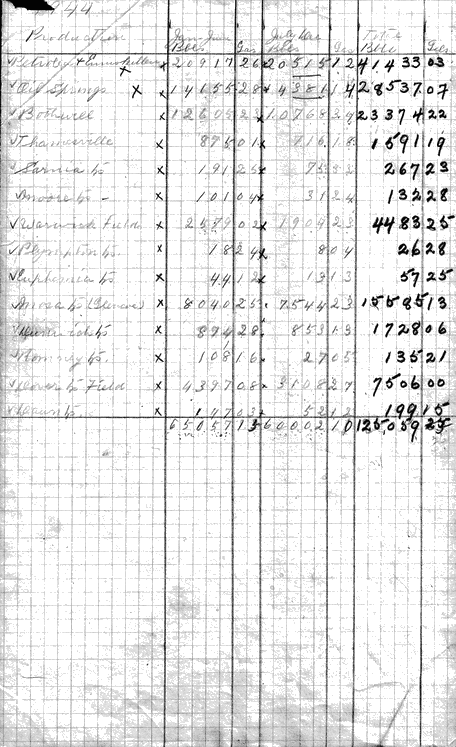 1944
Production Jan June Bbls Gas July Dec Bbls Gas Total Bbls Gals
✓Petrolia & Enniskillen x 20917 26 x 20515 12 41433 03
✓Oil Springs x 14155 28 x 14381 14 28537 07
✓Bothwell x 12605 23 x 10768 34 23374 22
✓Thamesville x 875 01 x 716 18 1591 19
✓Sarnia tp x 191 25 x 75 33 267 23
Moore tp - x 101 04 x 31 24 132 28
✓Warwick Field x 2579 02 x 1904 23 4483 25
✓Plympton tp x 18 24 x 8 04 26 28
✓Euphemia tp x 44 12 x 13 13 57 25
Mosa tp (Glencoe) x 8040 25 x 7544 23 15585 13
✓Dunwich tp x 874 28 x 853 13 1728 06
✓Romney tp x 108 16 x 27 05 135 21
✓Dover tp Field x 4397 08 x 3108 27 7506 00
✓Dawn tp x 147 03 x 52 12 199 15
65057 13 60002 10 125059 23